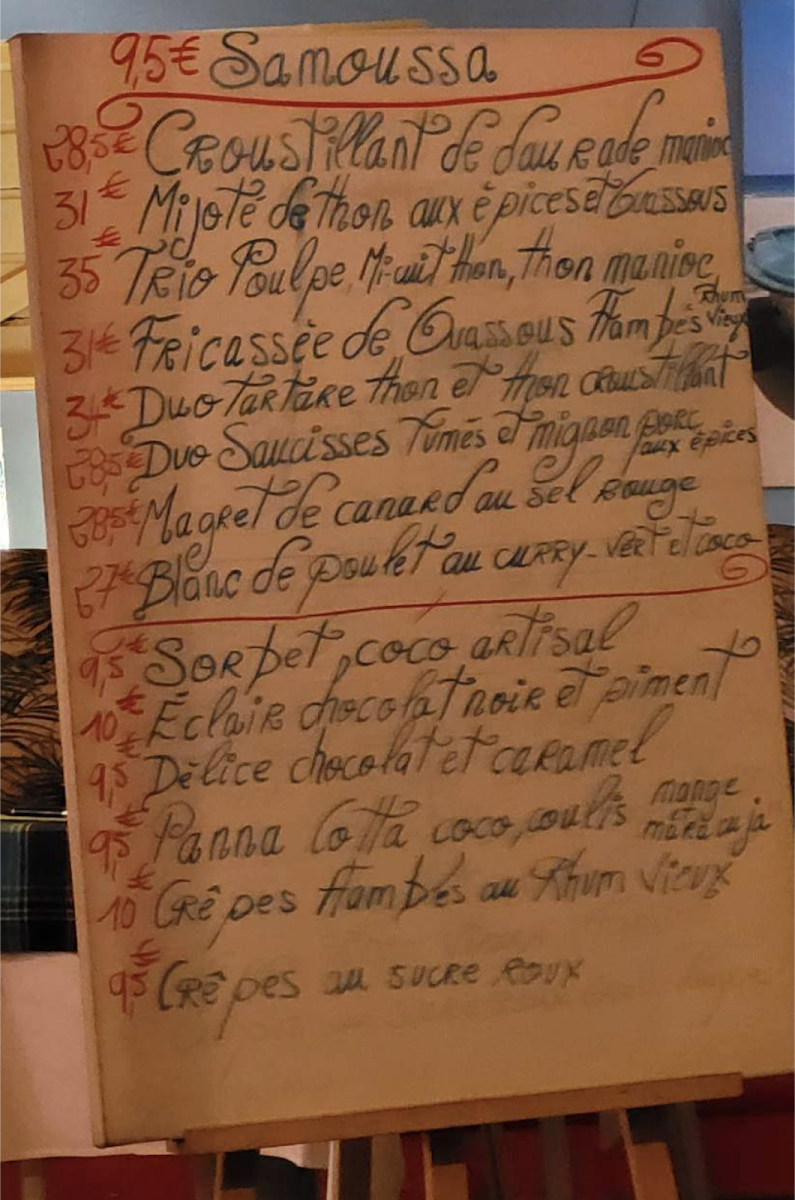 9,5€ Samoussa
28,5€ Croustillant de daurade manioc
31€ Mijoté de thon aux épices et Ouassous
35€ Trio Poulpe, Mi-cuit thon, thon manioc
31€ Fricassée de Ouassous flambés Rhum Vieux
31€ Duo Tartare thon et thon croustillant
28,5€ Duo Saucisses fumés et mignon porc aux épices
28,5€ Magret de canard au sel rouge
27€ Blanc de poulet au curry-vert et coco
9,5€ Sorbet, coco artisal
10€ Éclair chocolat noir et piment
9,5€ Délice chocolat et caramel
9,5€ Panna Cotta coco, coulis mange maracuja
10€ Crêpes flambés au Rhum Vieux
9,5€ Crêpes au sucre roux